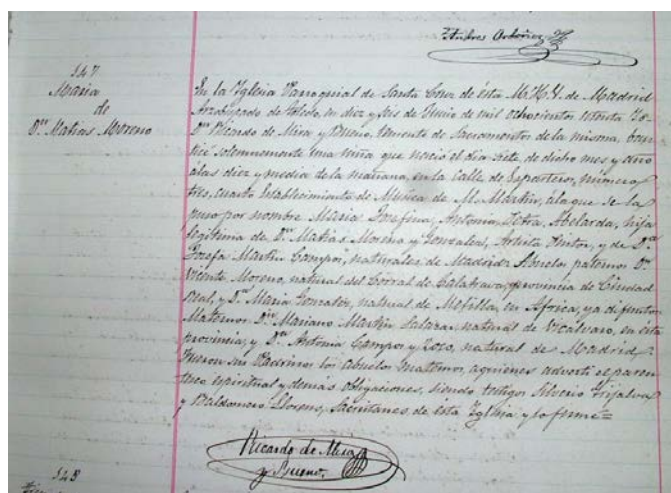 Andres Ordoñez
547
Maria
de
Dn. Matias Moreno
En la Yglesia Parroquial de Santa Cruz de ésta M. H. V. de Madrid
Arzobispado de Toledo, en diez y seis de Junio de mil ochocientos
Dn. Ricardo de Mira y Bueno, teniente de Sacramentos de la misma, bau
ticé solemnemente una niña que nació el dia siete de dicho mes y año
á las diez y media de la mañana, en la calle de Esparteros, número
tres, cuarto establecimiento de Música de M. Martin, á la que se la
puso por nombre Maria Josefina, Antonia, Abelarda, hija
legitima de Dn. Matias Moreno y Gonzalez, Artista Pintor, y de Da.
Josefa Martin Campos, naturales de Madrid: Abuelos paternos Dn.
Vicente Moreno, natural del Corral de Calatrava, provincia de Ciudad
Real, y Da. Maria Gonzalez, natural de Melilla, en Africa, ya difuntos
Maternos Dn. Mariano Martin Salazar, natural de Vicálvaro, en esta
provincia, y Da. Antonia Campos y natural de Madrid.
Fueron sus Padrinos los Abuelos maternos, a quienes advertí el paren
tesco espiritual y demás obligaciones, siendo testigos Silverio Grijalva
y Baldomero Llorens, Sacristanes de ésta Yglesia y lo firmé=
Ricardo de Mira
y Bueno.
548